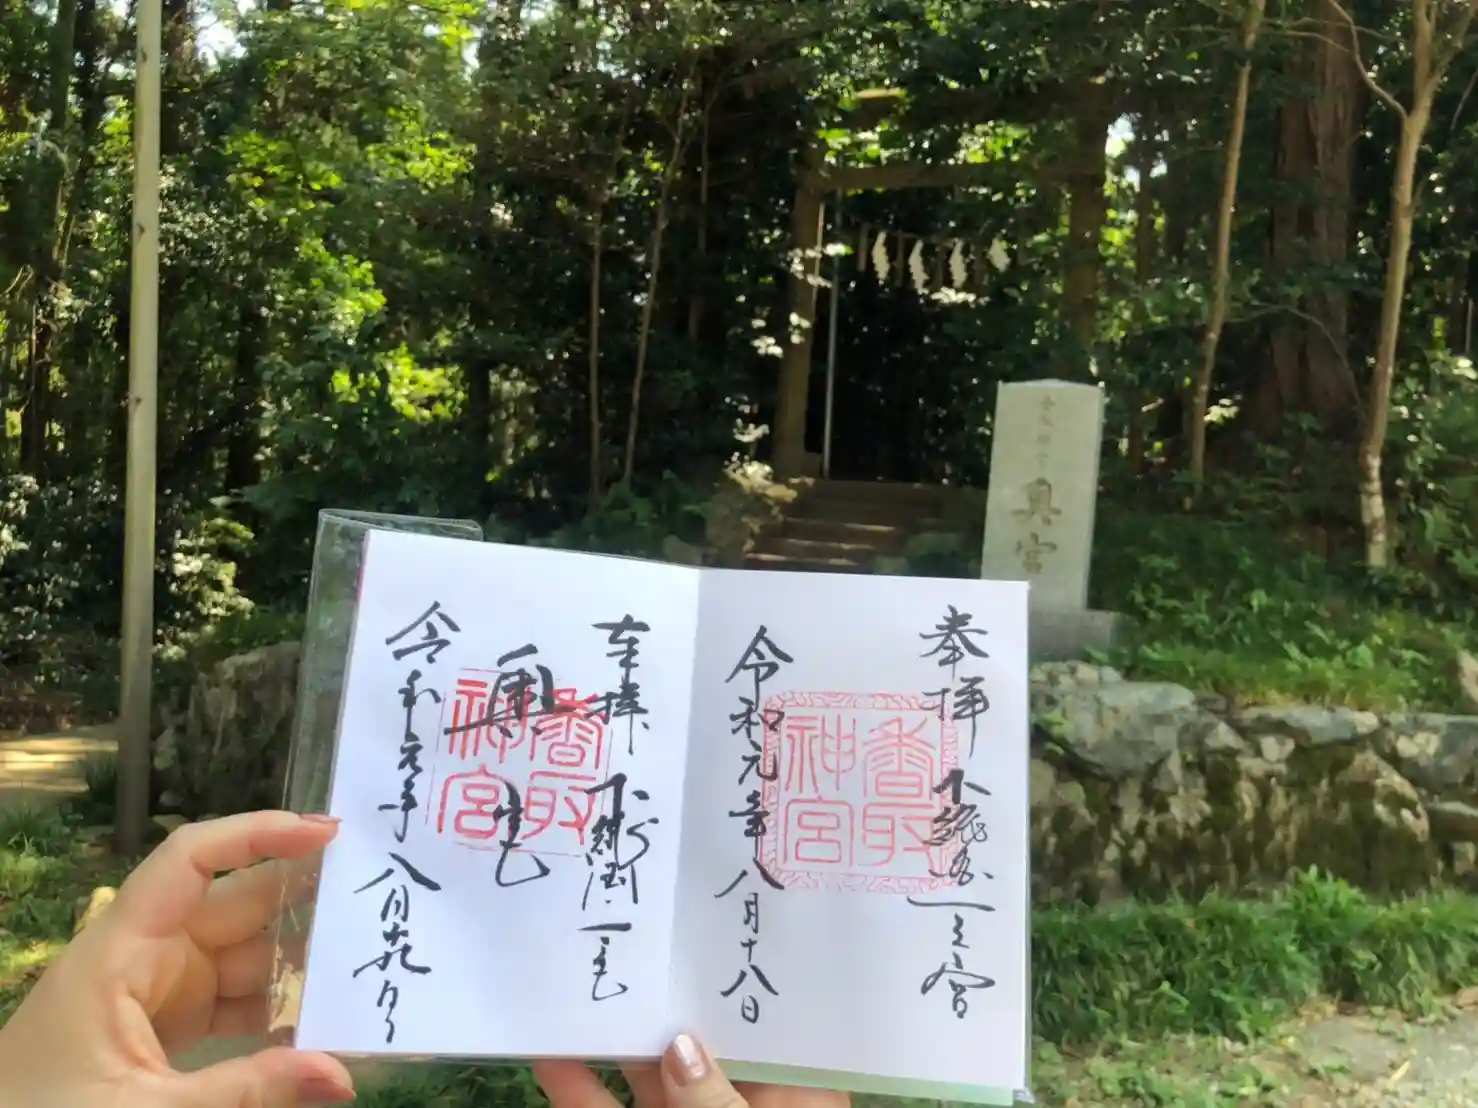 奉拝
下総国一之宮
香取
神宮
令和元年八月十八日
奉拝
下総国一之宮
奥宮
香取
神宮
令和元年八月
奥宮